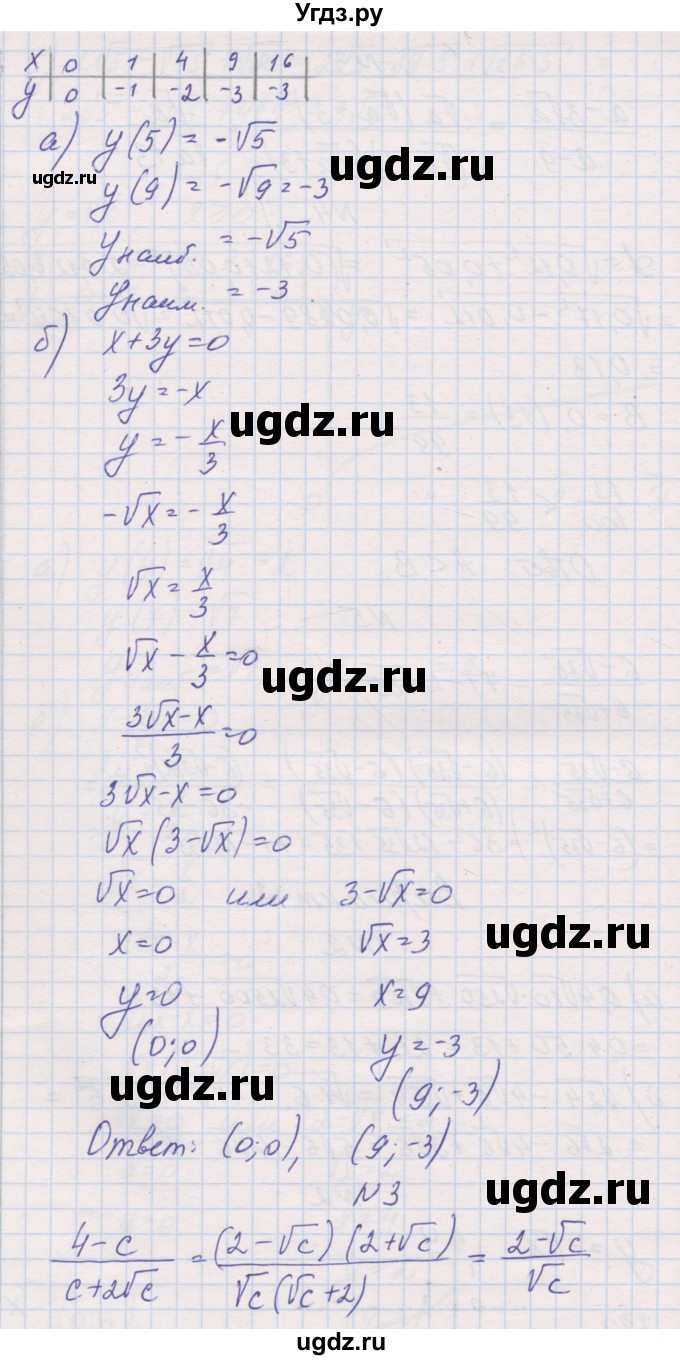 Угдз.ру
x | 0 | 1 | 4 | 9 | 16
y | 0 | -1 | -2 | -3 | -3
а) y(5) = -√5
ugdz.ru
ugdz.ru
y(9) = -√9 = -3
yнаиб. = -√5
yнаим. = -3
б) x+3y=0
3y=-x
ugdz.ru
y = -x/3
-√x = -x/3
√x = x/3
√x - x/3 = 0
ugdz.ru
(3√x-x)/3 = 0
3√x-x=0
√x(3-√x)=0
√x=0 или 3-√x=0
ugdz.ru
x=0 √x=3
y=0 x=9
(0;0) y=-3
ugdz.ru
(9;-3)
Ответ: (0;0), (9;-3)
ugdz.ru
N3
(4-c)/(c+2√c) = ((2-√c)(2+√c))/(√c(√c+2)) = (2-√c)/√c
ugdz.ru